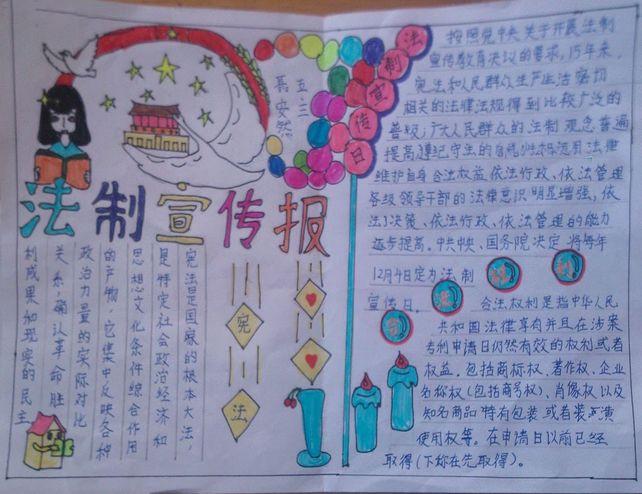 五、三
聂安然
法制宣传报
宪法是国家的根本大法,
是特定社会政治经济和
思想文化条件综合作用
的产物,它集中反映各种
政治力量的实际对比
关系,确认革命胜
利成果和现实的民主
宪
法
法制宣传日
按照党中央关于开展法制
宣传教育决议的要求,15年来,
宪法和人民群众生产生活密切
相关的法律法规得到比较广泛的
普级;广大人民群众的法制观念普遍
提高,遵纪守法的自觉性和运用法律
维护自身合法权益、依法行政、依法管理
各级领导干部的法律意识明显增强,依
法决策、依法行政、依法管理的能力
逐步提高。中共中央、国务院决定将每年
12月4日定为法制
宣传日。
合法权利
合法权利是指中华人民
共和国法律享有并且在涉案
专利申请日仍然有效的权利或者
权益。包括商标权、著作权、企业
名称权(包括商号权)、肖像权以及
知名商品特有包装或者装潢
使用权等。在申请日以前已经
取得(下称在先取得)。